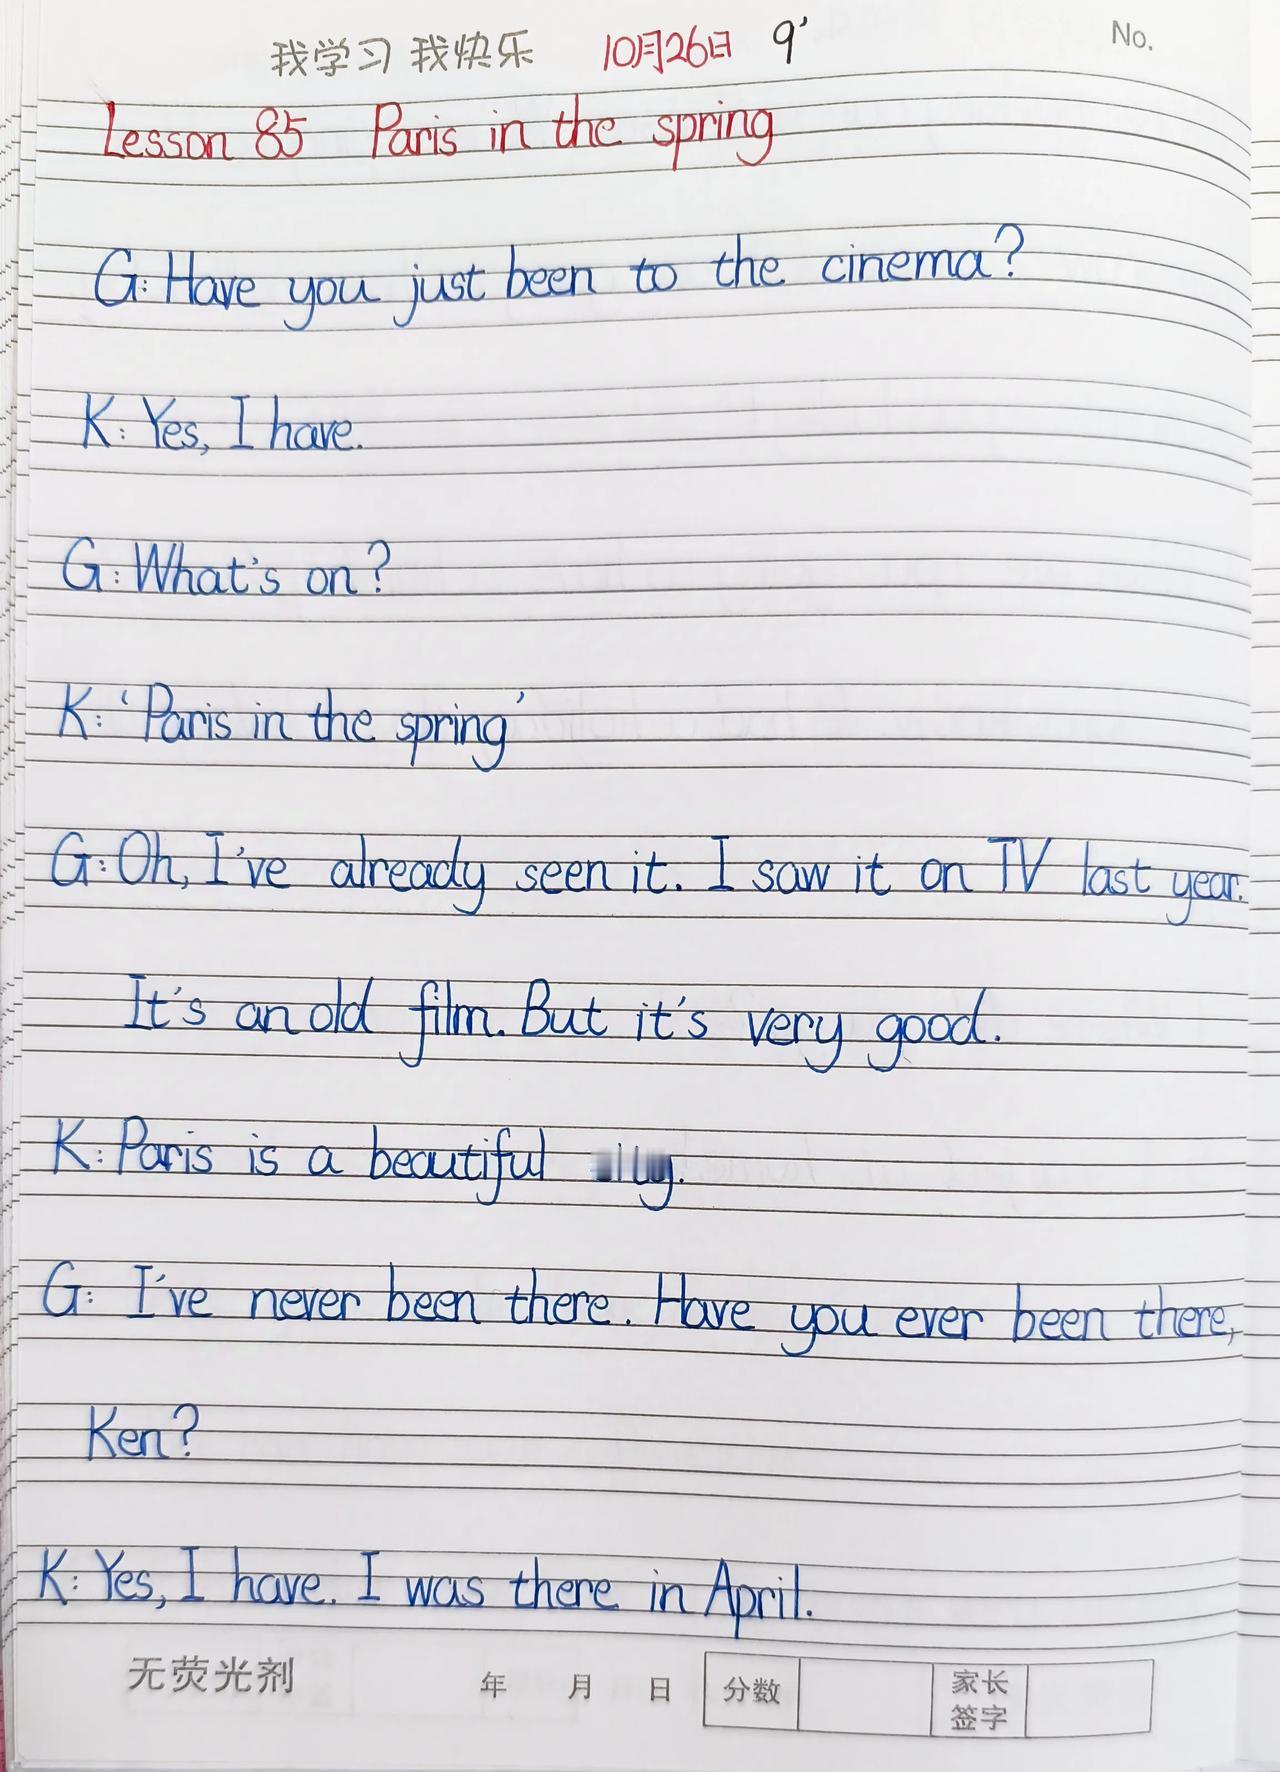 我学习 我快乐 10月26日 9' No.
Lesson 85 Paris in the spring
G: Have you just been to the cinema?
K: Yes, I have.
G: What's on?
K: 'Paris in the spring'
G: Oh, I've already seen it. I saw it on TV last year.
It's an old film. But it's very good.
K: Paris is a beautiful
G: I've never been there. Have you ever been there,
Ken?
K: Yes, I have. I was there in April.
无荧光剂 年 月 日 分数 家长签字